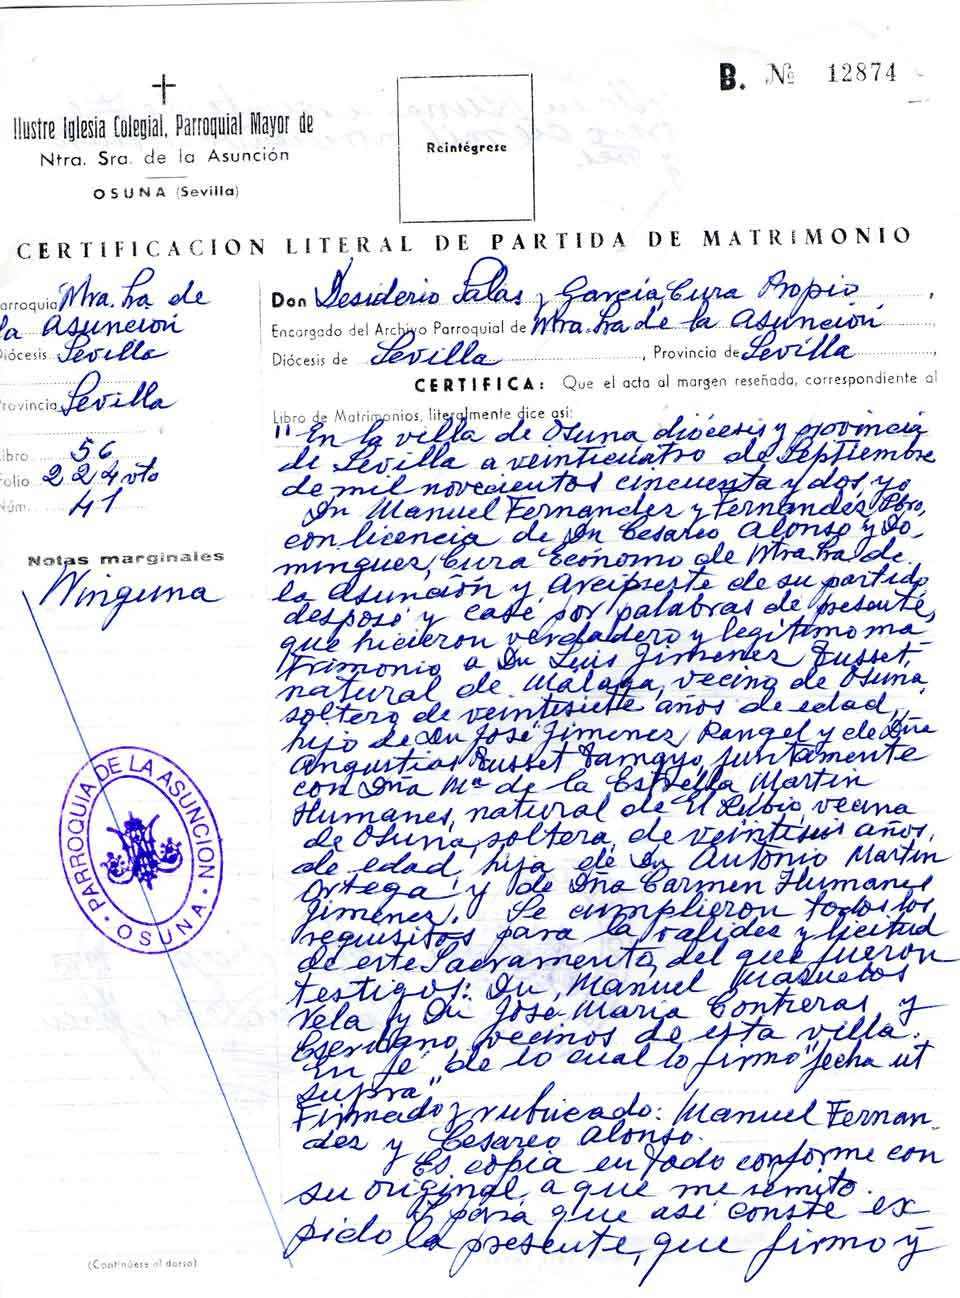 B. Nº 12874
Ilustre Iglesia Colegial, Parroquial Mayor de
Ntra. Sra. de la Asunción
OSUNA (Sevilla)
Reintégrese
CERTIFICACION LITERAL DE PARTIDA DE MATRIMONIO
arroquia Ntra. Sra de
la Asunción
Diócesis Sevilla
rovincia Sevilla
ibro 56
Folio 224 vto
Núm. 41
Notas marginales
Ninguna
PARROQUIA DE LA ASUNCION · OSUNA ·
(Continúese al dorso)
Don Desiderio Salas y García, Cura Propio,
Encargado del Archivo Parroquial de Ntra. Sra de la Asunción
Diócesis de Sevilla, Provincia de Sevilla,
CERTIFICA: Que el acta al margen reseñada, correspondiente al
Libro de Matrimonios, literalmente dice así:
"En la villa de Osuna diócesis y provincia
de Sevilla a veinticuatro de Septiembre
de mil novecientos cincuenta y dos, yo
Dn Manuel Fernandez y Fernández Pbro,
con licencia de Dn Cesareo Alonso y Do-
minguez, Cura Ecónomo de Ntra. Sra de
la Asunción y Arcipreste de su partido
desposé y casé por palabras de presente,
que hicieron verdadero y legítimo ma-
trimonio a Dn Luis Jimenez Russet,
natural de Málaga, vecino de Osuna,
soltero de veintisiete años de edad,
hijo de Dn José Jimenez Rangel y de Dña
Angustias Russet Tamayo, juntamente
con Dña Mª de la Estrella Martin
Humanes, natural de El Rubio, vecina
de Osuna, soltera, de veintiseis años,
de edad, hija de Dn Antonio Martin
Ortega y de Dña Carmen Humanes
Jimenez. Se cumplieron todos los
requisitos para la validez y licitud
de este Sacramento, del que fueron
testigos: Dn Manuel Mazuelos
Vela y Dn José María Contreras y
Escribano, vecinos de esta villa.
En fe de lo cual lo firmo "fecha ut
supra"
Firmado y rubricado: Manuel Fernan-
dez y Cesareo Alonso.
Es copia en todo conforme con
su original, a que me remito.
Y para que así conste ex
pido la presente, que firmo y